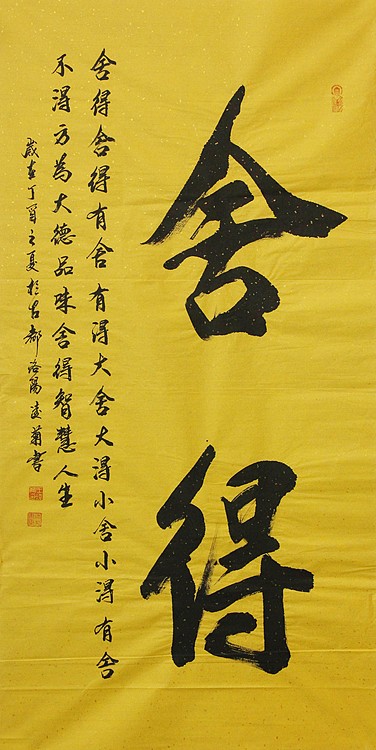 舍得
舍得舍得有舍有得大舍大得小舍小得有舍
不得方為大德品味舍得智慧人生
歲在丁酉之夏於古都洛陽遠菊書